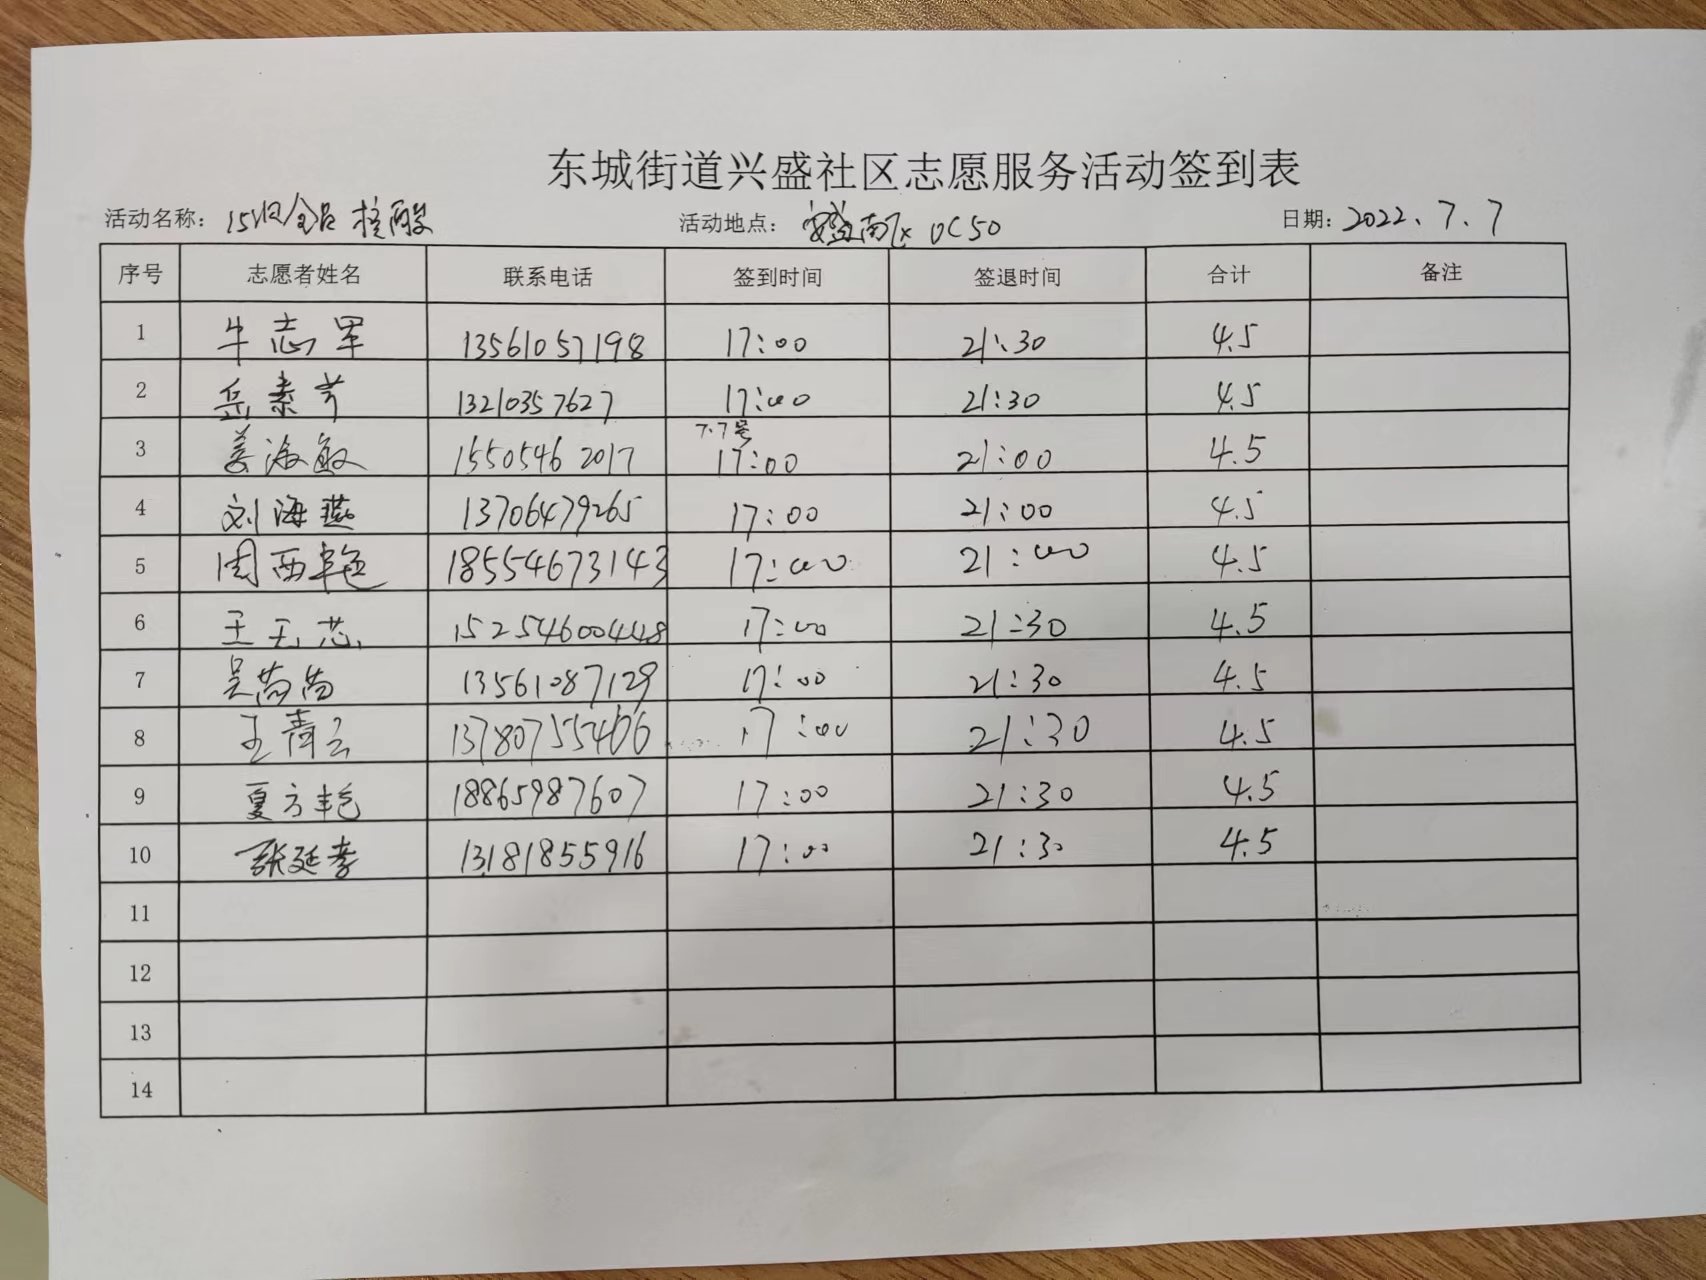 东城街道兴盛社区志愿服务活动签到表
活动名称： 15次全员核酸 活动地点： 安盛南区 0C50 日期：2022.7.7
序号 志愿者姓名 联系电话 签到时间 签退时间 合计 备注
1 牛志军 13561057198 17:00 21:30 4.5
2 岳素芳 13210357627 17:00 21:30 4.5
7.7号
3 姜海敏 15505462017 17:00 21:00 4.5
4 刘海燕 13706479265 17:00 21:00 4.5
5 周西艳 18554673143 17:00 21:00 4.5
6 王玉芯 15254600448 17:00 21:30 4.5
7 吴苗苗 13561087129 17:00 21:30 4.5
8 王青云 17:00 21:30 4.5
9 夏方艳 18865987607 17:00 21:30 4.5
10 张延孝 13181855916 17:00 21:30 4.5
11
12
13
14